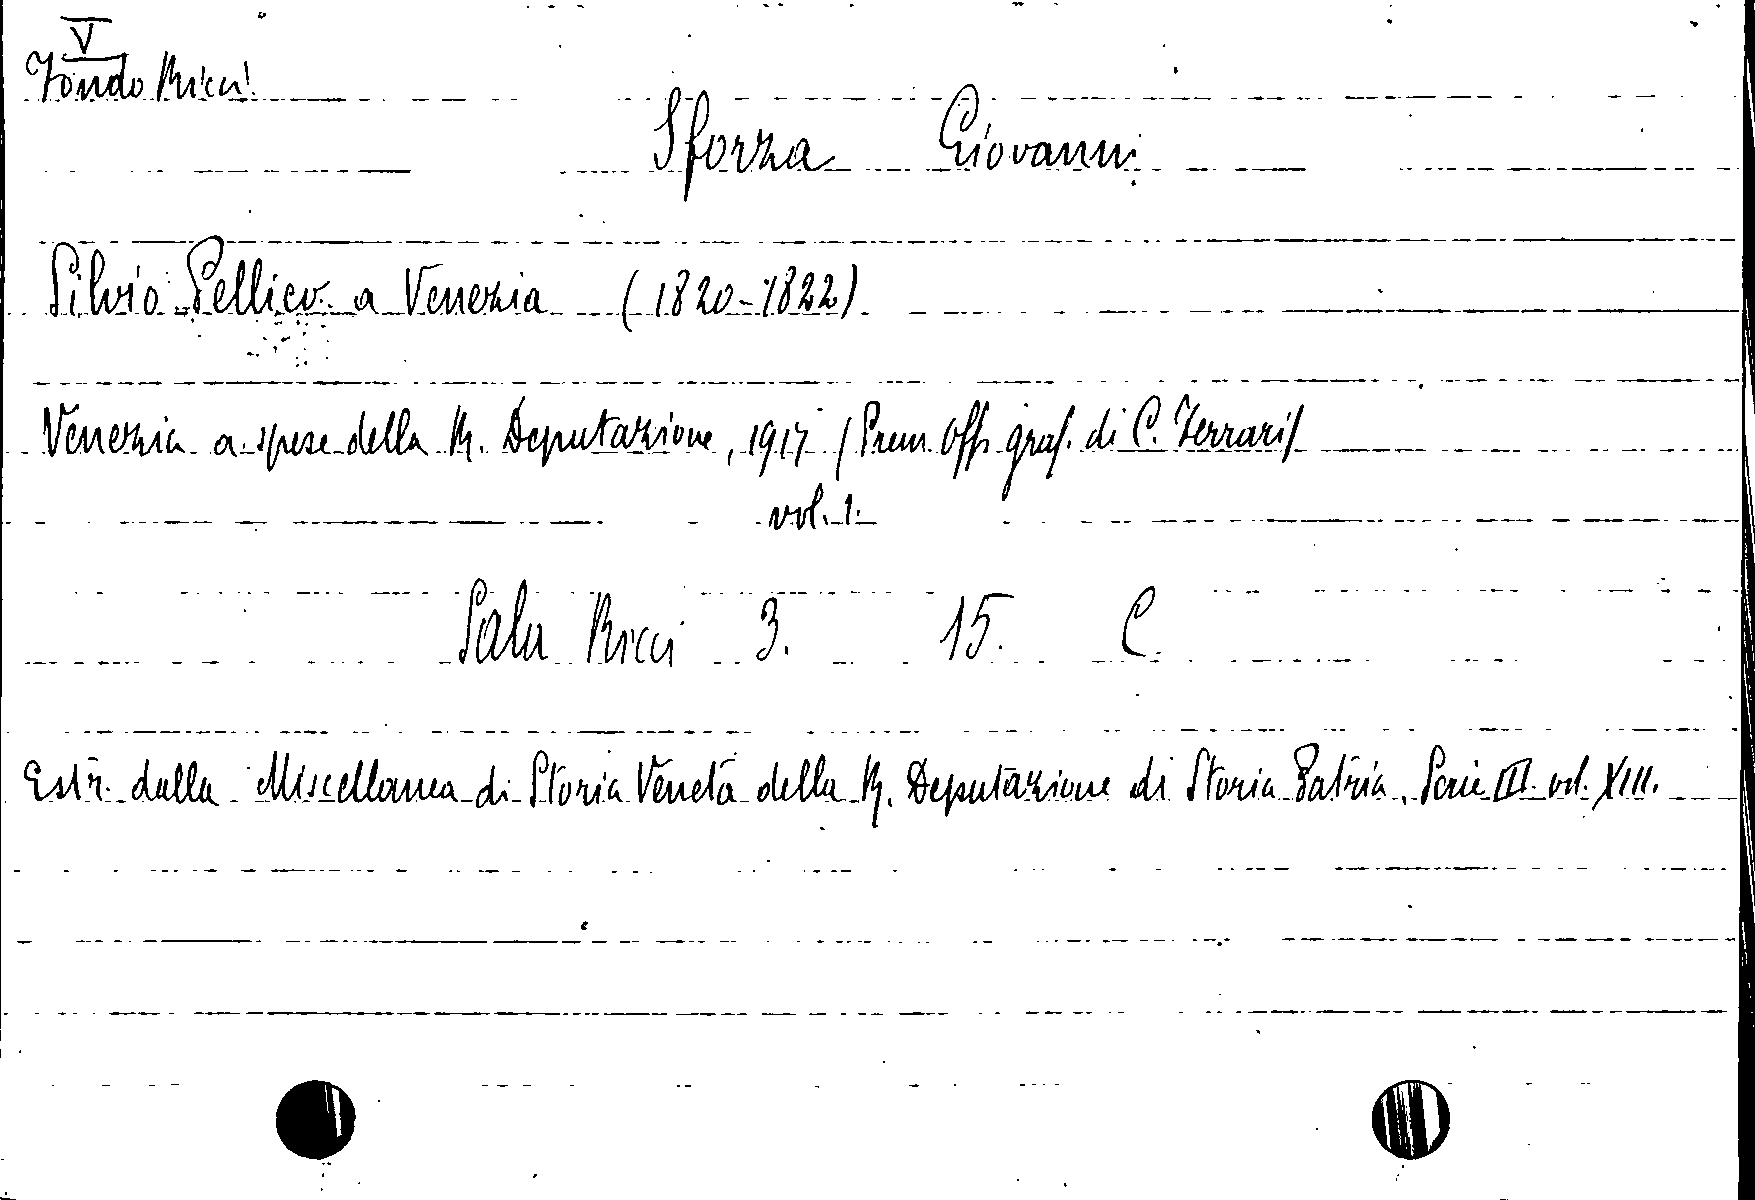 V
Fondo Ricci
Sforza Giovanni
Silvio Pellico a Venezia (1820-1822)
Venezia a spese della R. Deputazione, 1917 (Prem. Off. graf. di C. Ferrari)
vol. 1.
Sala Ricci 3. 15. C.
Estr. dalla Miscellanea di Storia Veneta della R. Deputazione di Storia Patria. Serie III. vol. XIII.